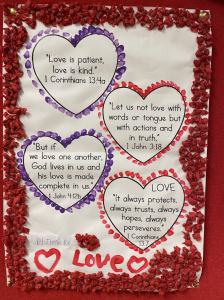 "Love is patient,
love is kind."
1 Corinthians 13:4a
"Let us not love with
words or tongue but
with actions and
in truth."
1 John 3:18
"But if
we love one another,
God lives in us and
his love is made
complete in us."
1 John 4:12b
LOVE
"It always protects,
always trusts, always
hopes, always
perseveres."
1 Corinthians
13:7
Love